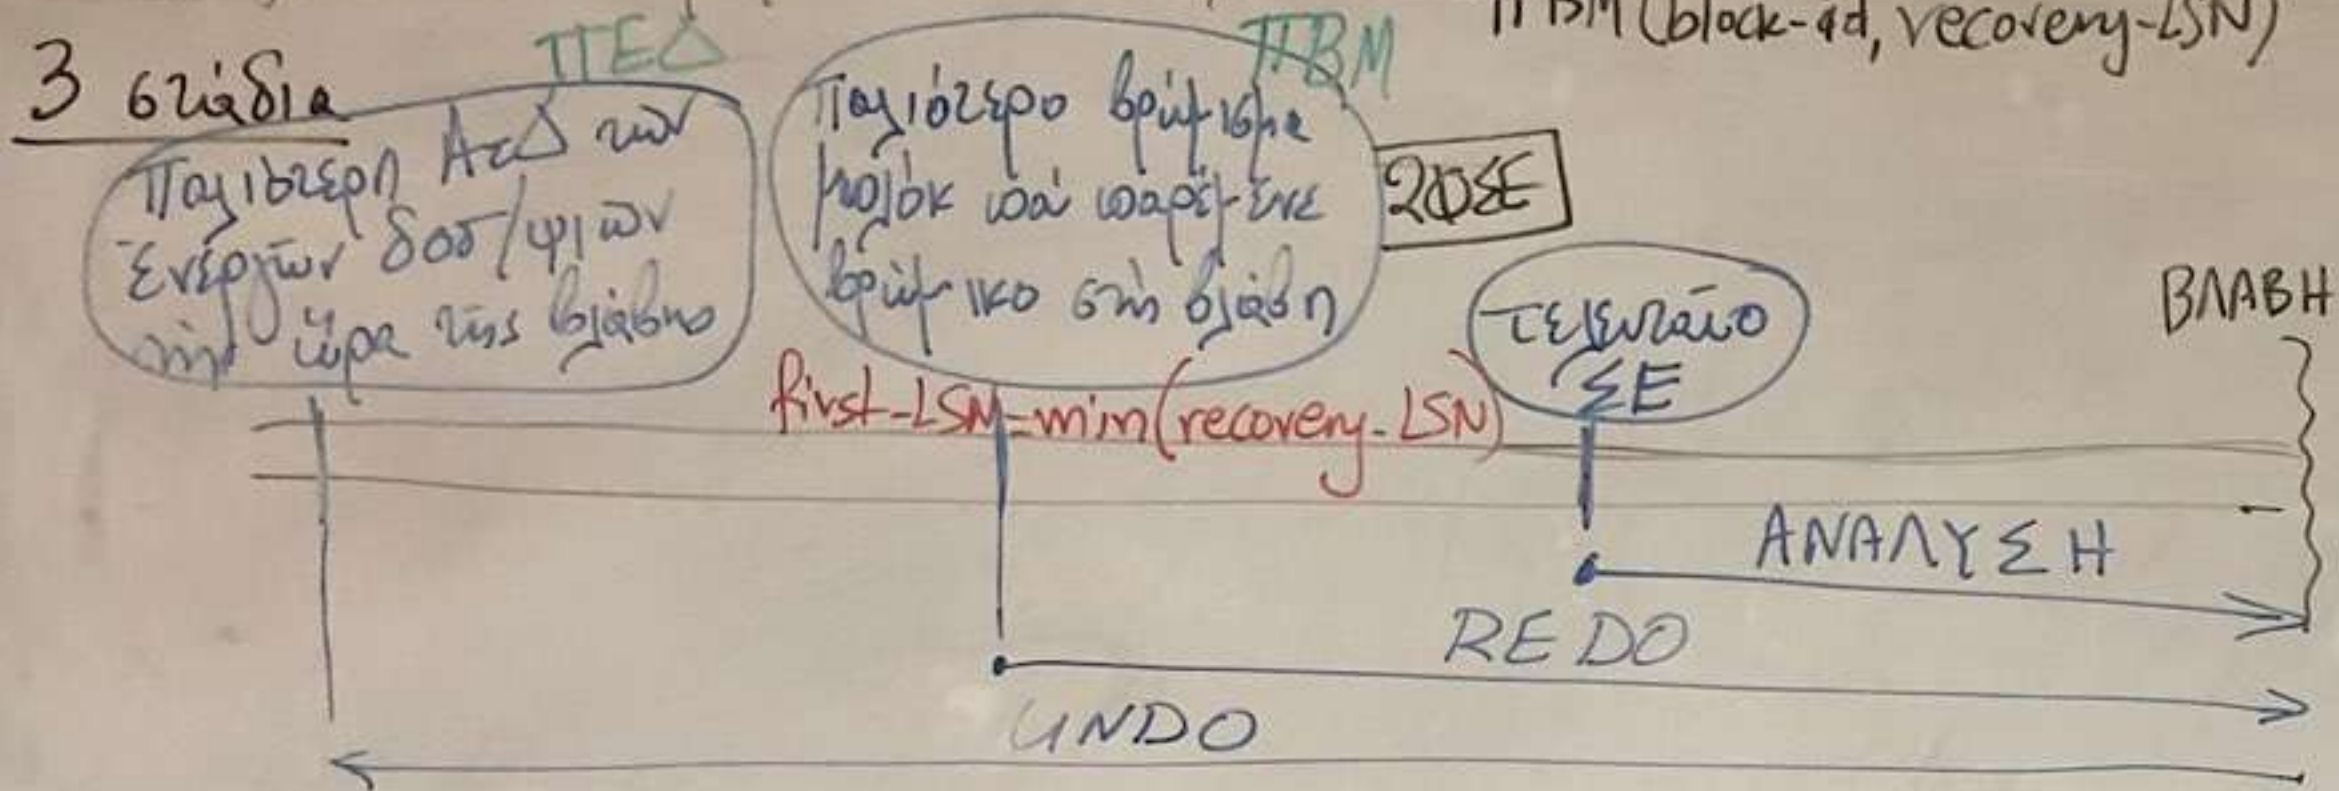 ΠΒΜ (block-id, recovery-LSN)
3 στάδια
ΠΕΔ
Παλιότερη ΑσΔ των
ενεργών δοσ/ψιών
την ώρα της βλάβης
ΠΒΜ
Παλιότερο βρώμισμα
μπλόκ πού παρέμενε
βρώμικο στη βλάβη
2ΦΣΕ
τελευταίο
ΣΕ
ΒΛΑΒΗ
first-LSN=min(recovery-LSN)
ΑΝΑΛΥΣΗ
REDO
UNDO